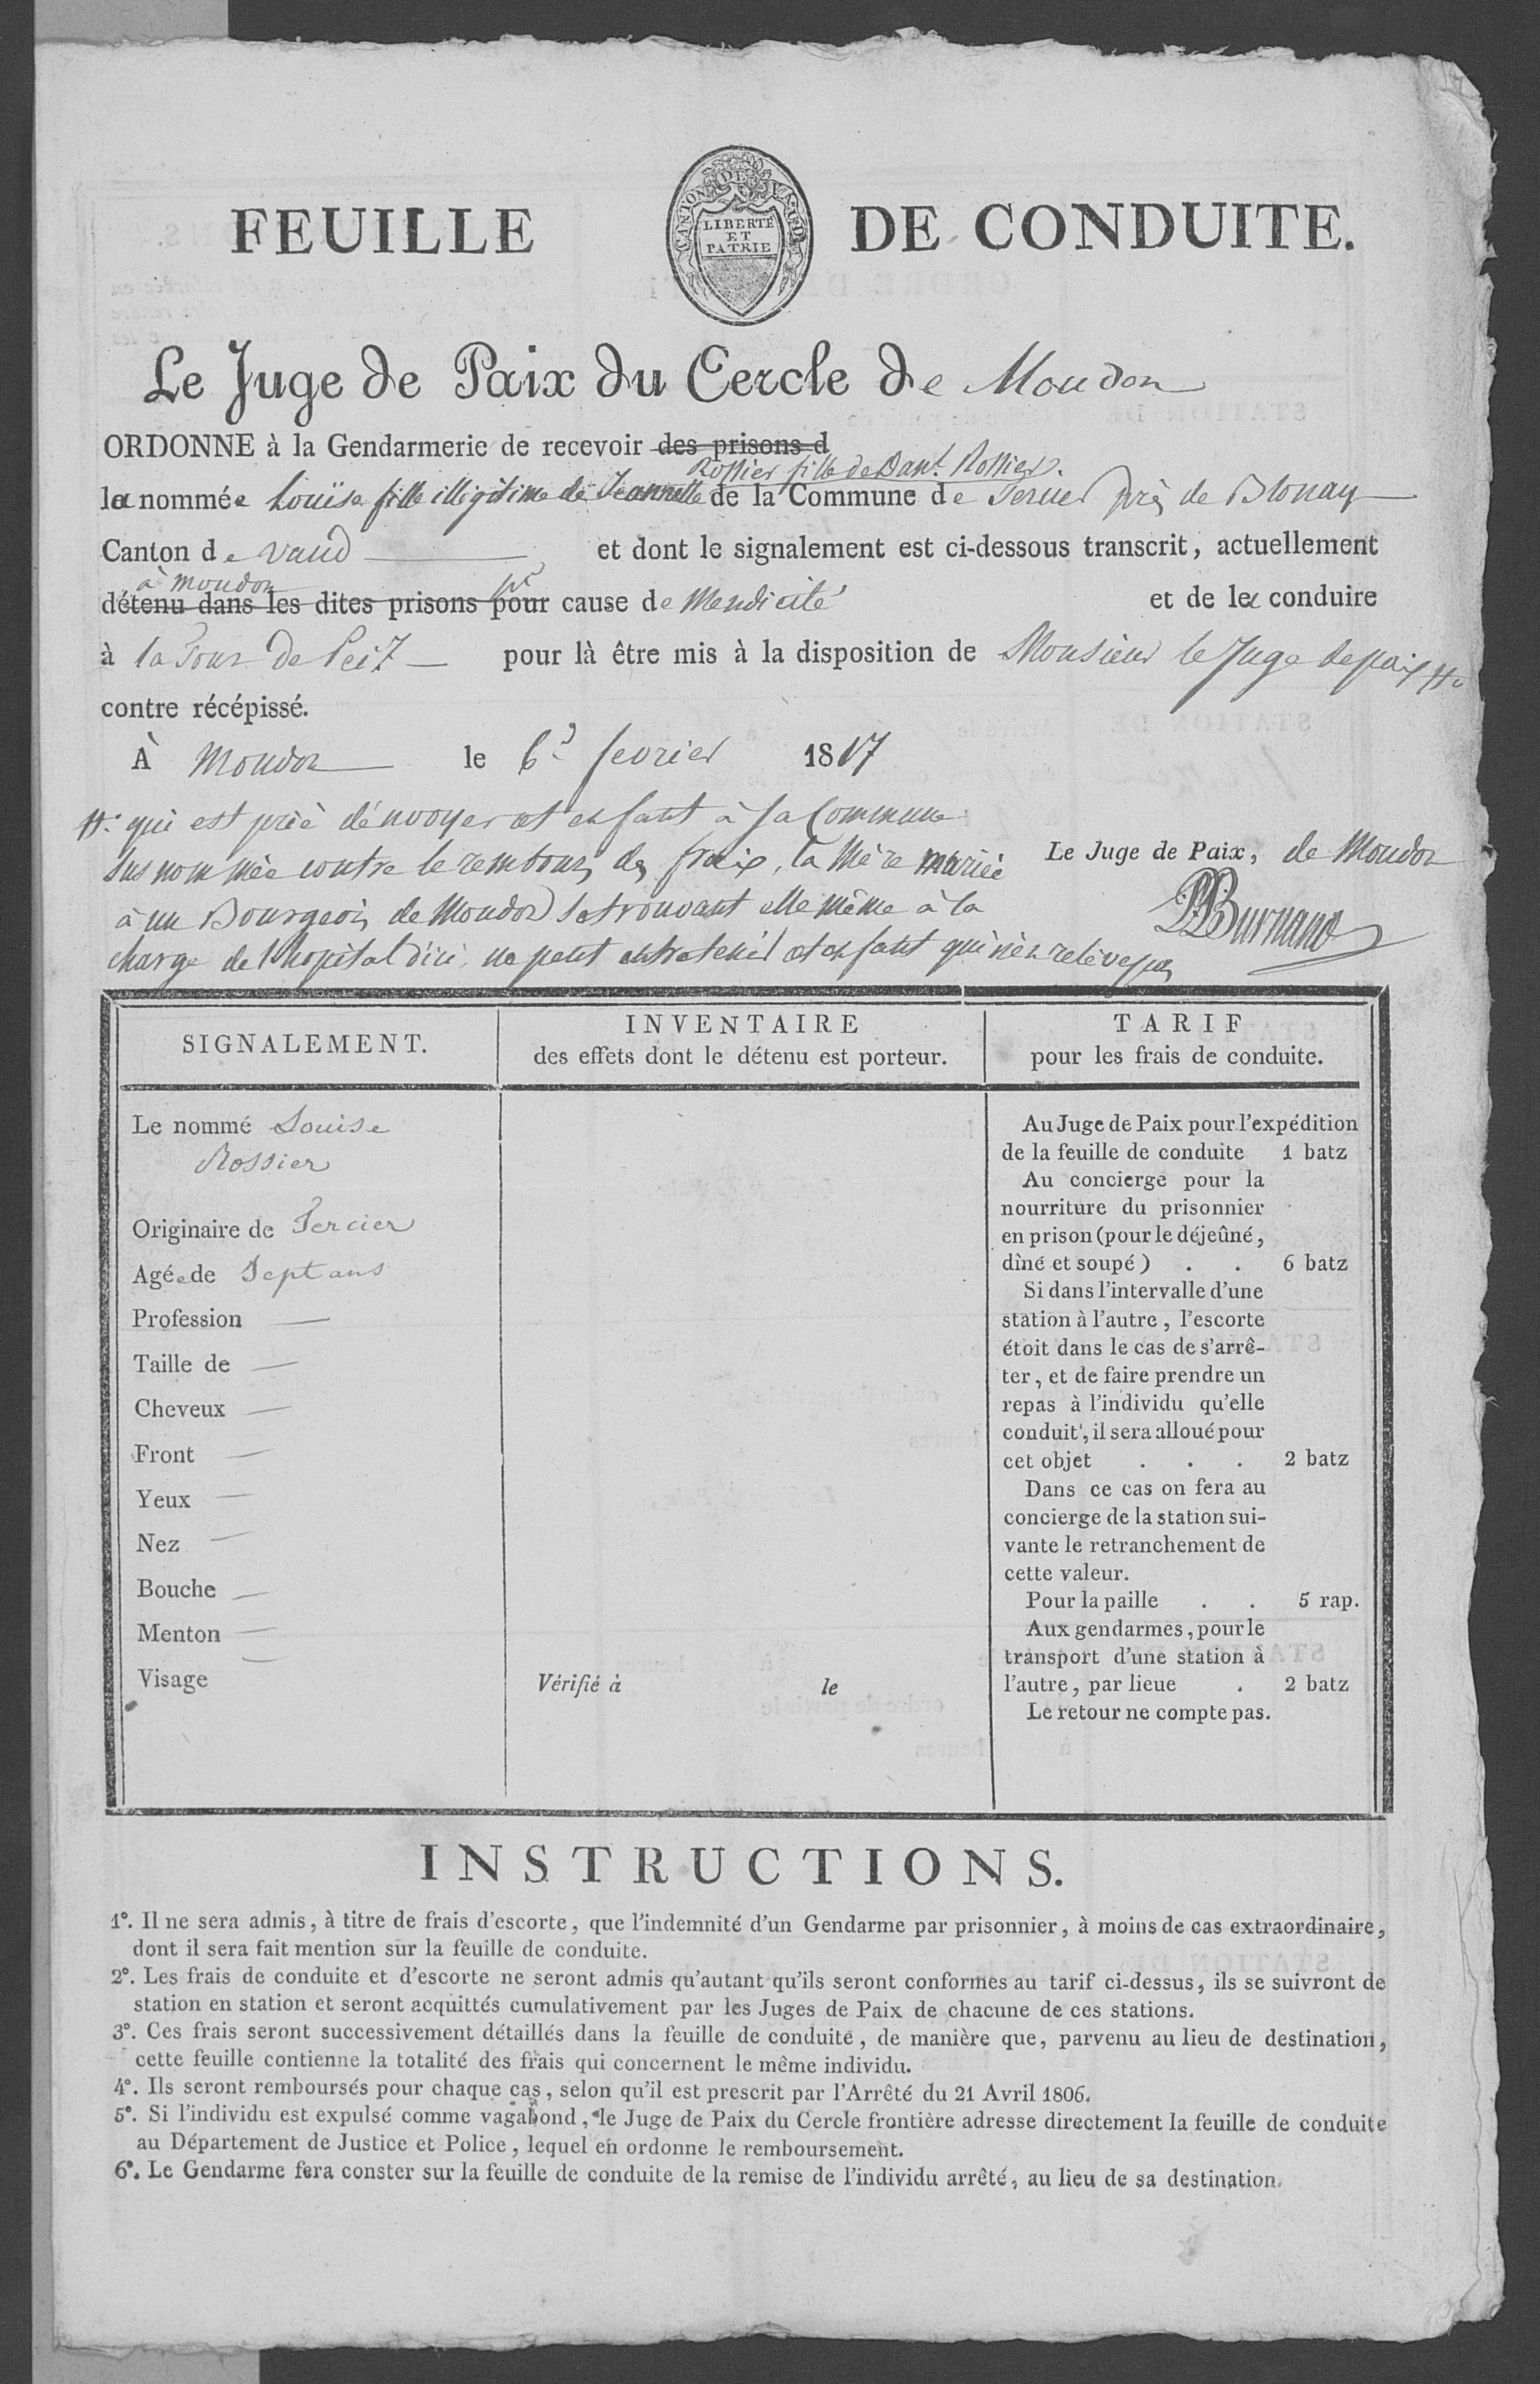 FEUILLE DE CONDUITE.
CANTON DE VAUD
LIBERTÉ
ET
PATRIE
Le Juge de Paix du Cercle de Moudon
ORDONNE à la Gendarmerie de recevoir des prisons d
Rossier fille de Dan.l Rossier.
la nommée Louïse fille illégitime de Jeannette de la Commune de près de Blonay
Canton de Vaud et dont le signalement est ci-dessous transcrit, actuellement
à Moudon pr
détenu dans les dites prisons pour cause de Mendicité et de la conduire
à la Tour de Peilz pour là être mis à la disposition de Monsieur le Juge de paix #.
contre récépissé.
À Moudon le 6.e fevrier 1817
#. qui est prié d'envoyer cet enfant à sa Commune
sus nommée contre le rembours des fraix, la Mère mariée
Le Juge de Paix, de Moudon
à un Bourgeois de Moudon se trouvant elle même à la
Burnand
charge de l'hopital d'ici, ne peut entretenir cet enfant qui n'en relève pas
SIGNALEMENT.
INVENTAIRE
des effets dont le détenu est porteur.
TARIF
pour les frais de conduite.
Le nommé Louise
Rossier
Originaire de Tercier
Agée de Sept ans
Profession —
Taille de —
Cheveux —
Front —
Yeux —
Nez —
Bouche —
Menton —
Visage —
Vérifié à le
Au Juge de Paix pour l'expédition
de la feuille de conduite 1 batz
Au concierge pour la
nourriture du prisonnier
en prison (pour le déjeûné,
dîné et soupé) . . 6 batz
Si dans l'intervalle d'une
station à l'autre, l'escorte
étoit dans le cas de s'arrê-
ter, et de faire prendre un
repas à l'individu qu'elle
conduit, il sera alloué pour
cet objet . . . 2 batz
Dans ce cas on fera au
concierge de la station sui-
vante le retranchement de
cette valeur.
Pour la paille . . 5 rap.
Aux gendarmes, pour le
transport d'une station à
l'autre, par lieue . 2 batz
Le retour ne compte pas.
INSTRUCTIONS.
1°. Il ne sera admis, à titre de frais d'escorte, que l'indemnité d'un Gendarme par prisonnier, à moins de cas extraordinaire,
dont il sera fait mention sur la feuille de conduite.
2°. Les frais de conduite et d'escorte ne seront admis qu'autant qu'ils seront conformes au tarif ci-dessus, ils se suivront de
station en station et seront acquittés cumulativement par les Juges de Paix de chacune de ces stations.
3°. Ces frais seront successivement détaillés dans la feuille de conduite, de manière que, parvenu au lieu de destination,
cette feuille contienne la totalité des frais qui concernent le même individu.
4°. Ils seront remboursés pour chaque cas, selon qu'il est prescrit par l'Arrêté du 21 Avril 1806.
5°. Si l'individu est expulsé comme vagabond, le Juge de Paix du Cercle frontière adresse directement la feuille de conduite
au Département de Justice et Police, lequel en ordonne le remboursement.
6°. Le Gendarme fera conster sur la feuille de conduite de la remise de l'individu arrêté, au lieu de sa destination.